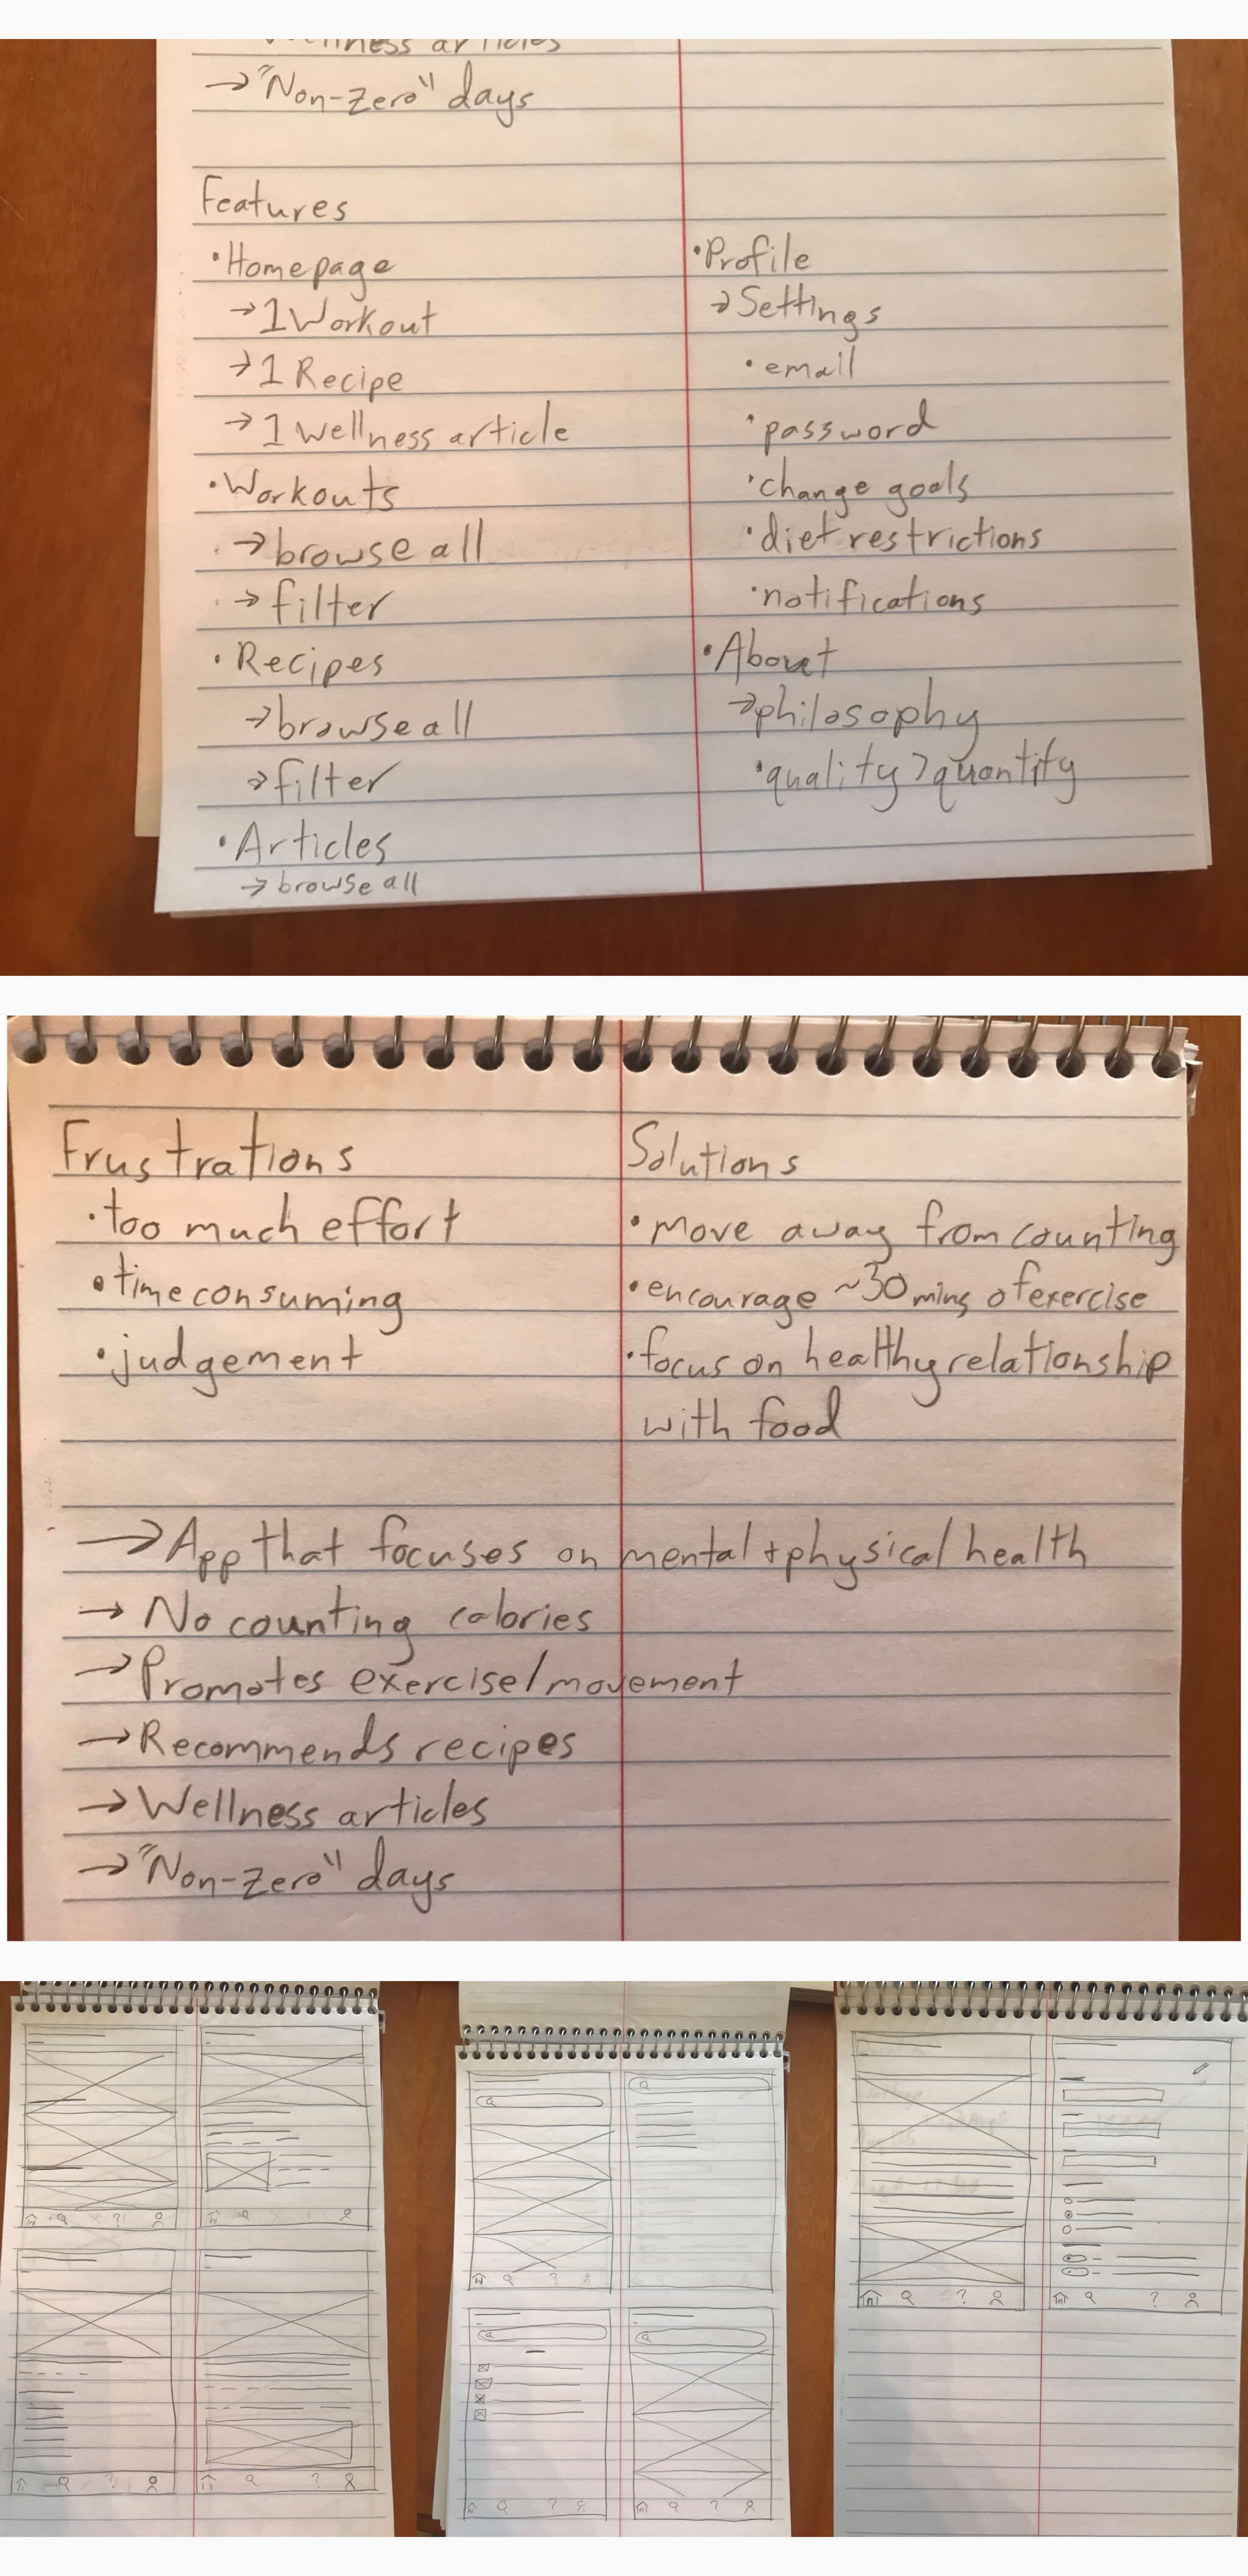 → "Non-zero" days
Features
• Homepage
→ 1 Workout
→ 1 Recipe
→ 1 wellness article
• Workouts
→ browse all
→ filter
• Recipes
→ browse all
→ filter
• Articles
→ browse all
• Profile
→ Settings
• email
• password
• change goals
• diet restrictions
• notifications
• About
→ philosophy
• quality > quantity
Frustrations
• too much effort
• time consuming
• judgement
Solutions
• move away from counting
• encourage ~30 mins of exercise
• focus on healthy relationship
with food
→ App that focuses on mental + physical health
→ No counting calories
→ Promotes exercise/movement
→ Recommends recipes
→ Wellness articles
→ "Non-zero" days